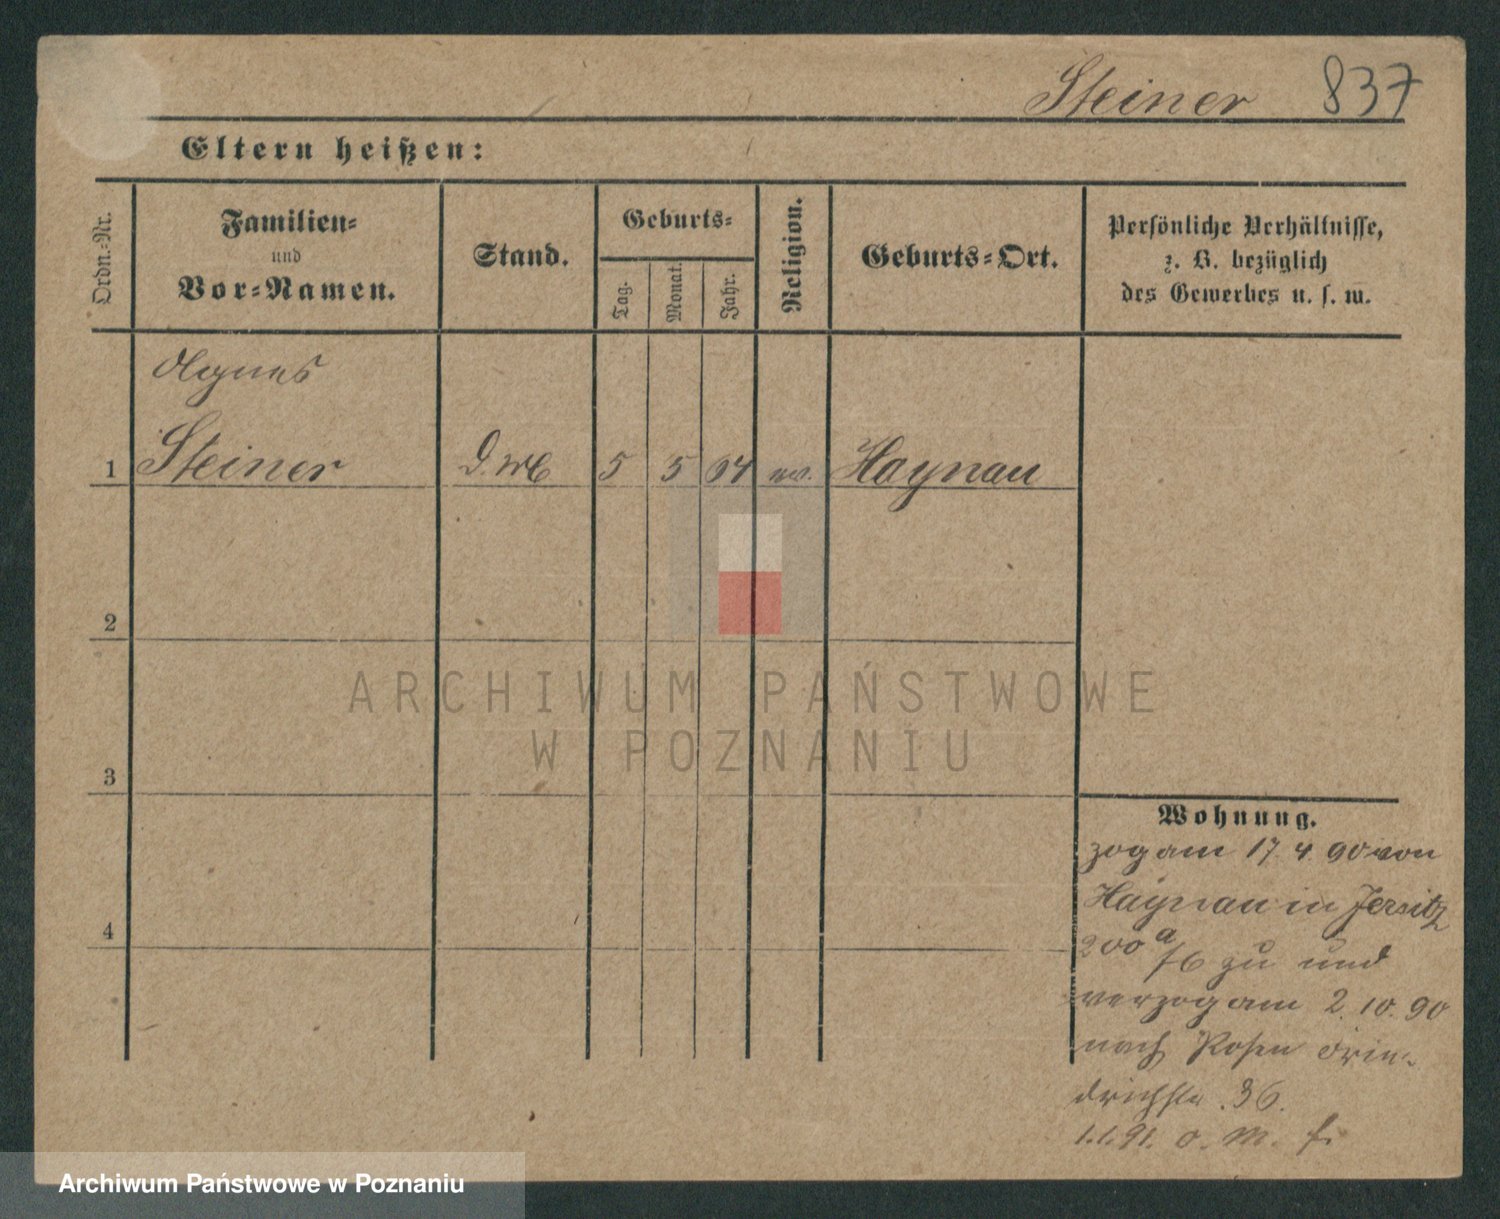 Steiner 837
Eltern heißen:
Ordn.-Nr.
Familien-
und
Vor-Namen.
Stand.
Geburts-
Tag.
Monat.
Jahr.
Religion.
Geburts-Ort.
Persönliche Verhältnisse,
z. B. bezüglich
des Gewerbes u. s. w.
Agnes
1 Steiner 5 5 ev. Haynau
2
3
4
Wohnung.
zog am 17. 4. 90 von
Haynau in Jersitz
200 a/6 zu und
verzog am 2. 10. 90
nach Posen
36.
1.1.91. o. M.
ARCHIWUM PAŃSTWOWE
W POZNANIU
Archiwum Państwowe w Poznaniu